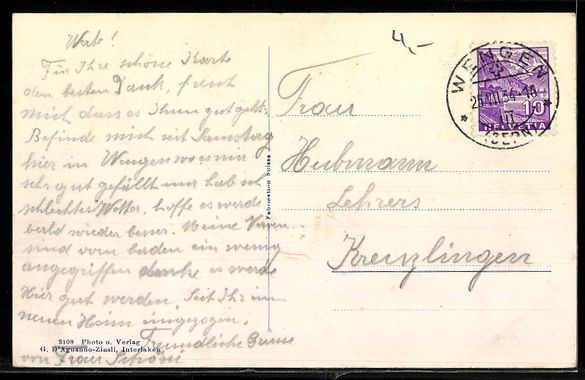 Werte!
Für Ihre schöne Karte
den besten Dank, freut
mich dass es Ihnen gut geht.
Befinde mich seit Samstag
hier in Wengen wo es mir
sehr gut gefällt nur hab ich
schlechtes Wetter, hoffe es werde
bald wieder besser. Meine Nerven
sind vom baden ein wenig
angegriffen denke es werde
Hier gut werden. Seit Ihr im
neuen Heim eingezogen.
Freundliche Grüsse
von Frau Schöni
3108 Photo u. Verlag
G. D'Aguanno-Zinsli, Interlaken
Fabrication Suisse
4,-
WENGEN
(BERN)
10
HELVETIA
Frau
Hubmann
Lehrers
Kreuzlingen